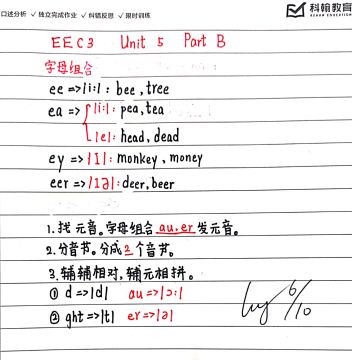 口述分析 ✓ 独立完成作业 ✓ 纠错反思 ✓ 限时训练
科翰教育
KEHAN EDUCATION
EEC3 Unit 5 Part B
字母组合
ee => |i:| : bee, tree
ea => |i:| : pea, tea
|e| : head, dead
ey => |I| : monkey, money
eer => |Iə| : deer, beer
1. 找元音。字母组合 au, er 发元音。
2. 分音节。分成 2 个音节。
3. 辅辅相对, 辅元相拼。
① d => |d| au => |ɔ:|
② ght => |t| er => |ə|
6/10